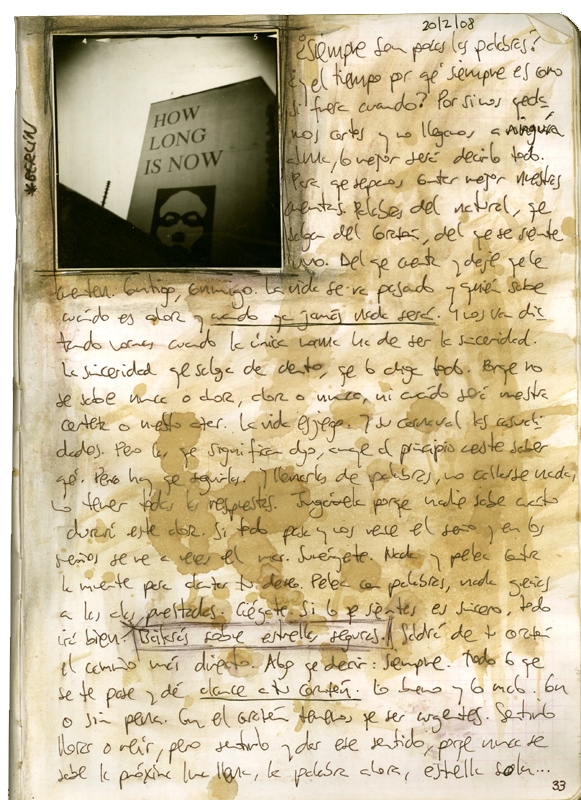 20/2/08
¿Siempre son pocas las palabras?
¿y el tiempo por qé siempre es como
si fuera cuando? Por si nos qeda-
mos cortos y no llegamos a ninguna
alma, lo mejor será decirlo todo.
Para qe sepamos contar mejor nuestros
cuentos. Palabras del natural, qe
salga del corazón, del qe se siente
uno. Del qe cuenta y deja qe le
cuenten. Contigo, conmigo. La vida se va pasando y quién sabe
cuándo es ahora y cuando ya jamás nada será. Y nos van dic-
tando normas cuando la única norma ha de ser la sinceridad.
La sinceridad qe salga de dentro, qe lo diga todo. Porqe no
se sabe nunca o ahora, ahora o nunca, ni cuándo será nuestra
o nuestro. La vida es juego. Y su carnaval las casuali-
dades. Pero las qe significan algo, aunqe al principio cueste saber
qé. Pero hay qe seguirlas. Y llenarlas de palabras, no callarse nada,
tener todas las respuestas. Juégatela porqe nadie sabe cuánto
durará este ahora. Si todo pasa y nos mece el sueño y en los
sueños se ve a veces el mar. Sumérgete. Nada y pelea contra
la muerte para cantar tu deseo. Pelea con palabras, nada
a las alas prestadas. Ciégate. Si lo qe sientes es sincero, todo
irá bien. Bailarás sobre estrellas seguras. Saldrá de tu corazón
el camino más directo. Algo qe decir: siempre. Todo lo qe
se te pase y dé alcance a tu corazón. Lo bueno y lo malo. Con
o sin pena. Con el corazón tenemos qe ser urgentes. Sentirlo
llorar o reír, pero sentirlo y dar ese sentido, porqe nunca se
sabe la próxima luna llena, la palabra ahora, estrella sola...
33
*BERLIN
HOW
LONG
IS NOW